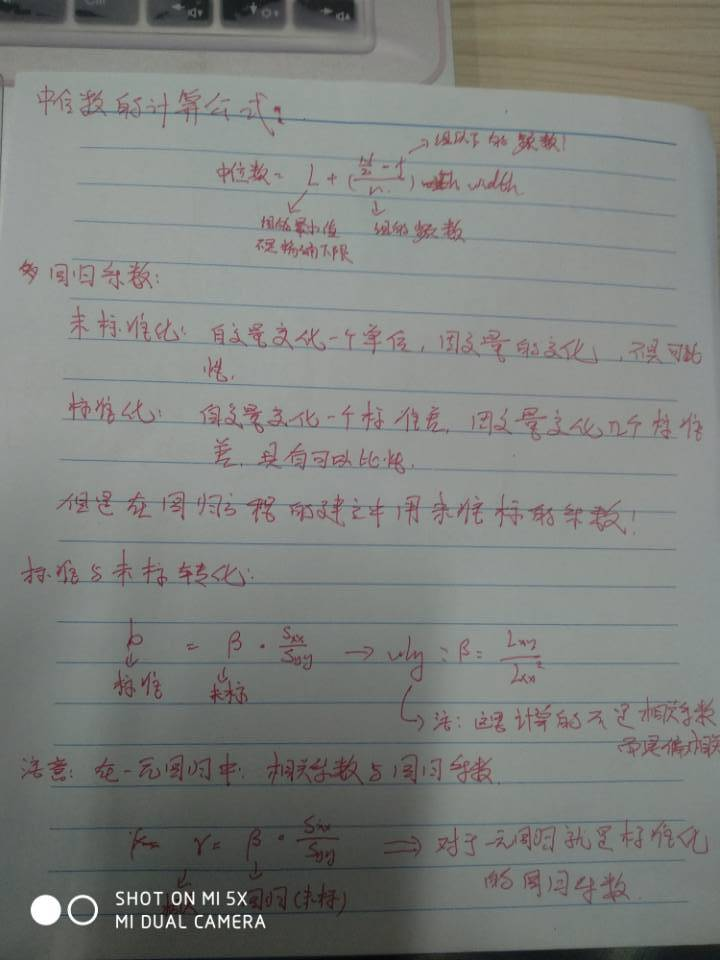 中位数的计算公式:
→组以下的频数!
中位数 = L + ( (N/2 - f) / n ) width
组的最小值 组的频数
不是精确下限
回归系数:
未标准化: 自变量变化一个单位, 因变量的变化, 不具可比
性.
标准化: 自变量变化一个标准差, 因变量变化几个标准
差, 具有可以比性.
但是在回归方程的建立中用未准标的系数!
标准与未标转化:
b = β · Sxx/Syy → why: β = Lxy/Lxx²
标准 未标
注: 这是计算的不是相关系数
而是偏相关
注意: 在一元回归中: 相关系数与回归系数
r = β · Sxx/Syy ⇒ 对于一元回归就是标准化
的回归系数
回归(未标)
SHOT ON MI 5X
MI DUAL CAMERA